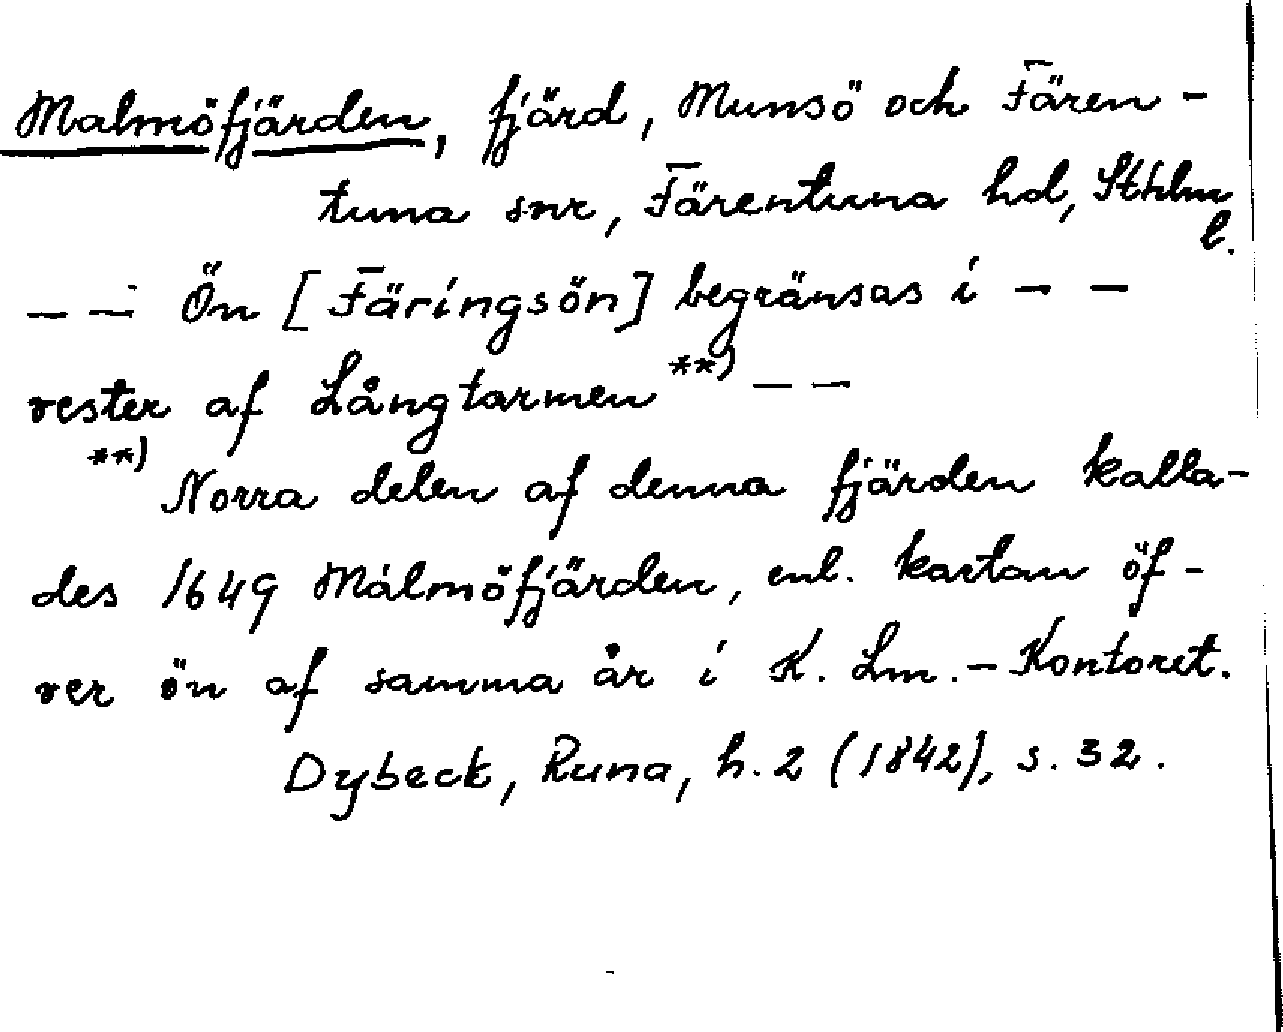 Malmöfjärden, fjärd, Munsö och Fären-
tuna snr, Färentuna hd, Sthlm
l.
– – Ön [Färingsön] begränsas i – –
vester af Långtarmen **) – –
**) Norra delen af denna fjärden kalla-
des 1649 Malmöfjärden, enl. kartan öf-
ver ön af samma år i K. Lm.-Kontoret.
Dybeck, Runa, h. 2 (1842), s. 32.